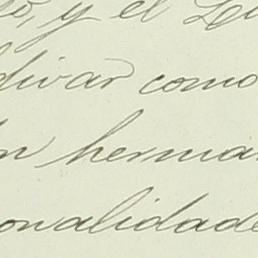 y el
divar como
herman
onalidade